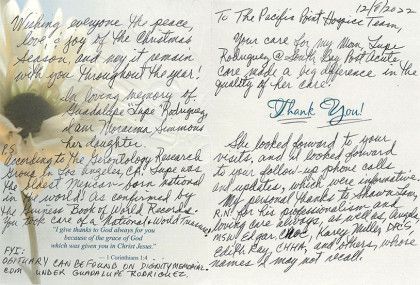 Wishing everyone the peace,
love & joy of the Christmas
Season, and may it remain
with you throughout the year!
In loving memory of
Guadalupe "Lupe" Rodriguez,
I am Moraima Simmons
her daughter.
P.S.
According to the Gerontology Research
Group in Los Angeles, CA. Lupe was
the oldest Mexican-born national
in the world as confirmed by
the Guinness Book of World Records.
You took care of a "national & world treasure".
"I give thanks to God always for you
because of the grace of God
which was given you in Christ Jesus."
— 1 Corinthians 1:4
FYI:
OBITUARY CAN BE FOUND ON DIGNITYMEMORIAL.
COM UNDER GUADALUPE RODRIGUEZ.
12/8/2022
To The Pacific Post Hospice Team,
Your care for my Mom, Lupe
Rodriguez @ South Bay Post Acute
care made a big difference in the
quality of her care!
Thank You!
She looked forward to your
visits, and I looked forward
to your follow-up phone calls
and updates, which were informative.
My personal thanks to
R.N. for his professionalism and
loving care always, as well as,
MSW, Edgar, Karey Miller,
Edith Ray, CHHA, and others, whose
names I may not recall.